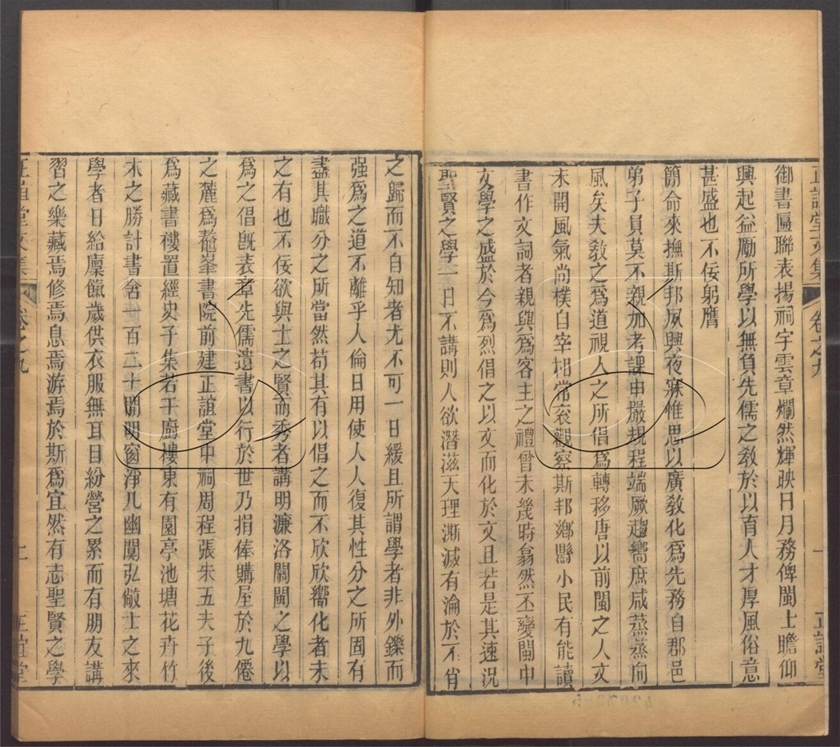 正誼堂文集 卷之九 一 正誼堂
御書匾聯表揚祠宇雲章爛然輝映日月務俾閩士瞻仰
興起益勵所學以無負先儒之教於以育人才厚風俗意
甚盛也不佞躬膺
簡命來撫斯邦夙興夜寐惟思以廣敎化爲先務自郡邑
弟子員莫不親加考課申嚴規程端厥趨嚮庶咸蒸蒸向
風矣夫敎之爲道視人之所倡爲轉移唐以前閩之人文
未開風氣尚樸自宰相常衮觀察斯邦鄉縣小民有能讀
書作文詞者親與爲客主之禮曾未幾時翕然丕變閩中
文學之盛於今爲烈倡之以文而化於文且若是其速況
聖賢之學一日不講則人欲潛滋天理澌滅有淪於不肖
之歸而不自知者尤不可一日緩且所謂學者非外鑠而
强爲之道不離乎人倫日用使人人復其性分之所固有
盡其職分之所當然苟其有以倡之而不欣欣嚮化者未
之有也不佞欲與士之賢而秀者講明濂洛關閩之學以
爲之倡旣表章先儒遺書以行於世乃捐俸購屋於九僊
之麓爲鼇峯書院前建正誼堂中祠周程張朱五夫子後
爲藏書樓置經史子集若干廚樓東有園亭池塘花卉竹
木之勝計書舍一百二十間明窗淨几幽闃弘敞士之來
學者日給廩餼歲供衣服無耳目紛營之累而有朋友講
習之樂藏焉修焉息焉游焉於斯爲宜然有志聖賢之學
正誼堂文集 卷之九 二 正誼堂